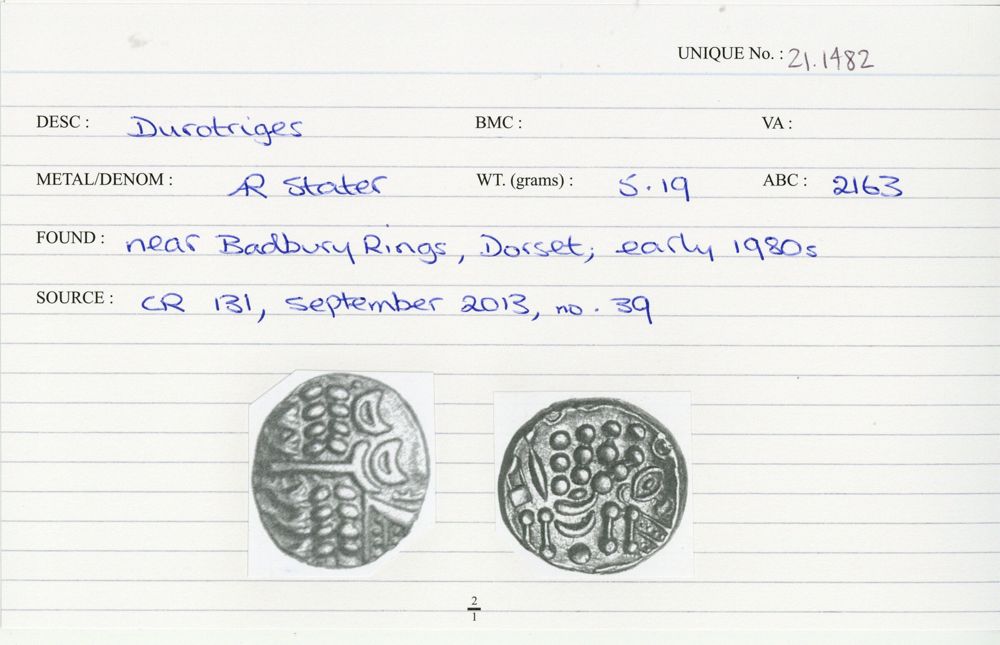 UNIQUE No. : 21.1482
DESC : Durotriges BMC : VA :
METAL/DENOM : AR Stater WT. (grams) : 5.19 ABC : 2163
FOUND : near Badbury Rings, Dorset; early 1980s
SOURCE : CR 131, September 2013, no. 39
2
1